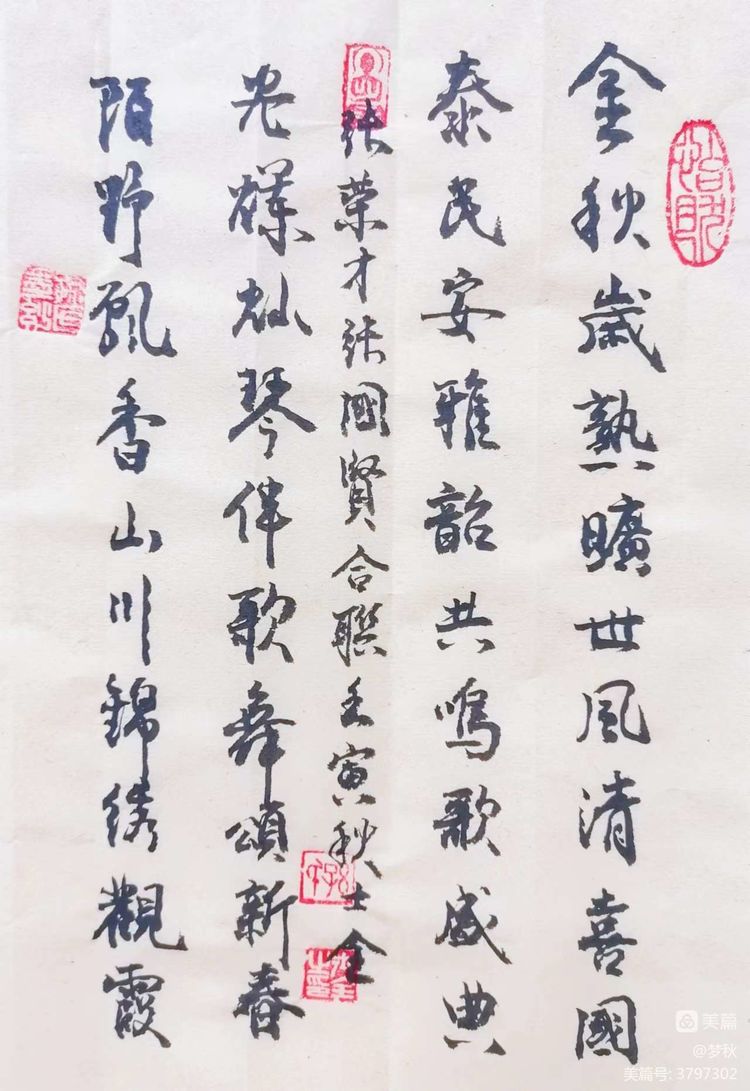 金秋歲熟曠世風清喜國
泰民安雅韶共鳴歌盛典
陌野飄香山川錦綉觀霞
光灿琴伴歌舞頌新春
張榮才張國賢合聯壬寅秋士全
美篇
@梦秋
美篇号: 3797302